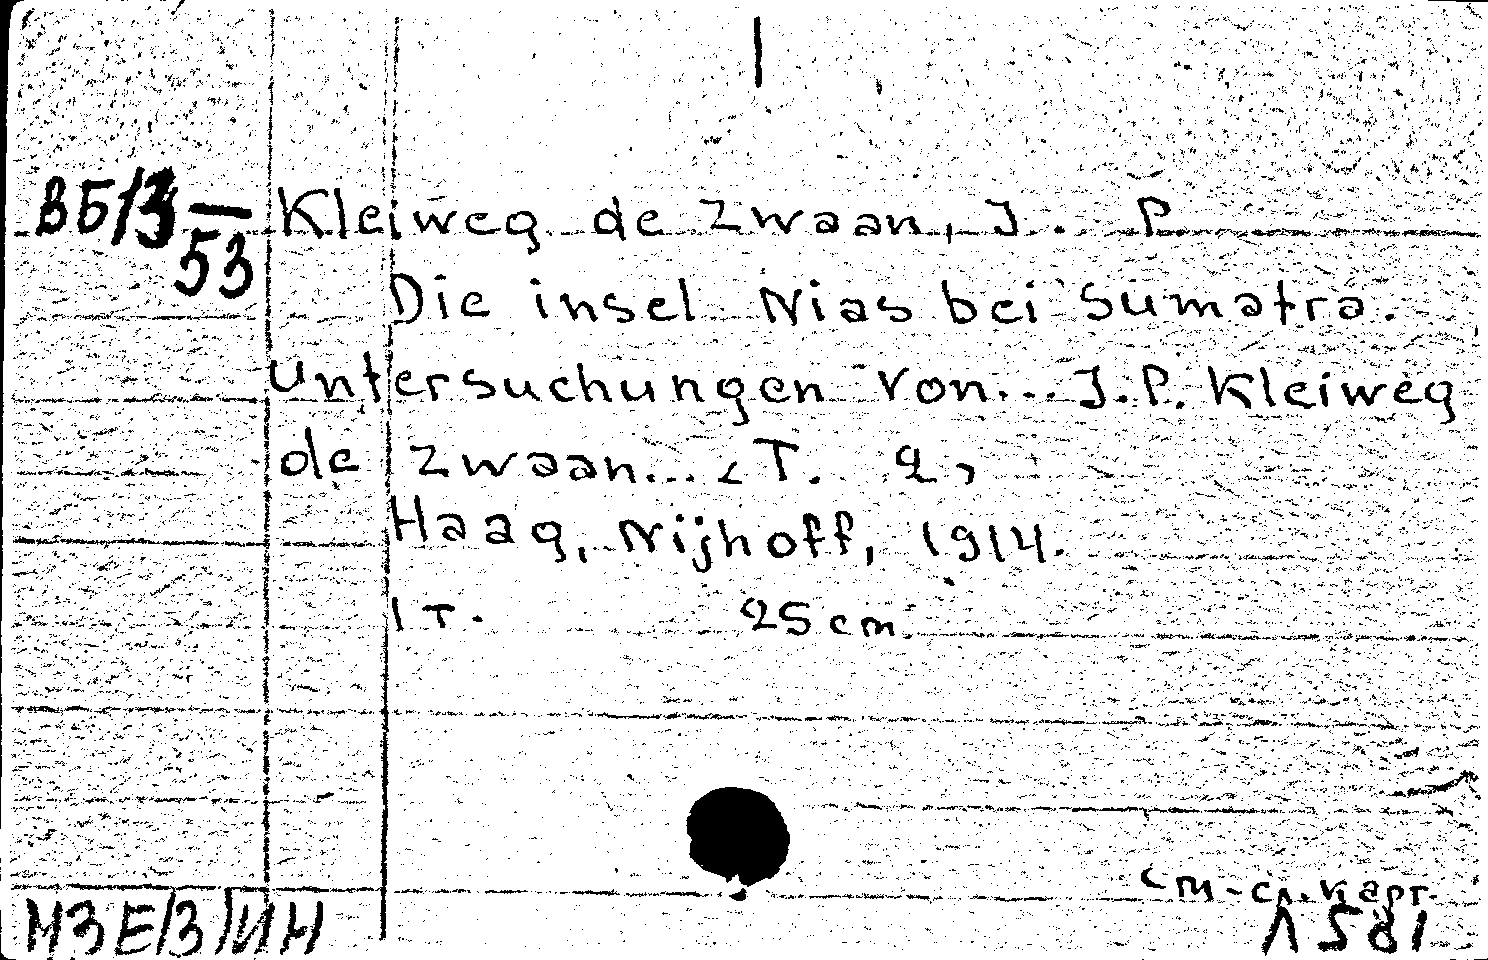 ВБ/3 — 53
Kleiweg de Zwaan, J. P.
Die insel Nias bei Sumatra.
Untersuchungen von... J.P. Kleiweg
de Zwaan... <T. 2>
Haag, Nijhoff, 1914.
1 т. 25 cm.
МЗЕ/З/ИН
Cm-сл. карт.
Л 581